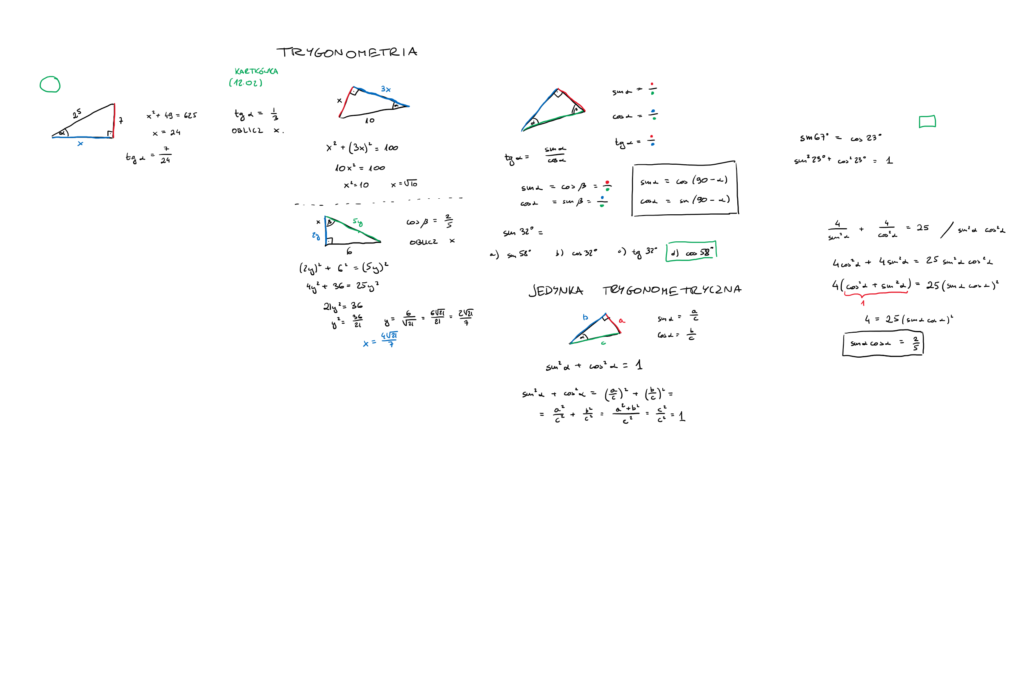 TRYGONOMETRIA
25
7
α
x
x² + 49 = 625
x = 24
tg α = 7/24
KARTKÓWKA
(12.02)
tg α = 1/3
OBLICZ x.
x
3x
10
x² + (3x)² = 100
10x² = 100
x² = 10 x = √10
x
β
5y
2y
6
cos β = 2/5
OBLICZ x
(2y)² + 6² = (5y)²
4y² + 36 = 25y²
21y² = 36
y² = 36/21 y = 6/√21 = 6√21/21 = 2√21/7
x = 4√21/7
sin α =
cos α =
tg α =
tg α = sin α/cos α
sin α = cos β =
cos α = sin β =
sin α = cos (90 - α)
cos α = sin (90 - α)
sin 32° =
a) sin 58° b) cos 32° c) tg 32° d) cos 58°
JEDYNKA TRYGONOMETRYCZNA
b
a
α
c
sin α = a/c
cos α = b/c
sin²α + cos²α = 1
sin²α + cos²α = (a/c)² + (b/c)² =
= a²/c² + b²/c² = a²+b²/c² = c²/c² = 1
sin 67° = cos 23°
sin² 23° + cos² 23° = 1
4/sin²α + 4/cos²α = 25 / sin²α cos²α
4cos²α + 4sin²α = 25 sin²α cos²α
4(cos²α + sin²α) = 25(sin α cos α)²
1
4 = 25(sin α cos α)²
sin α cos α = 2/5